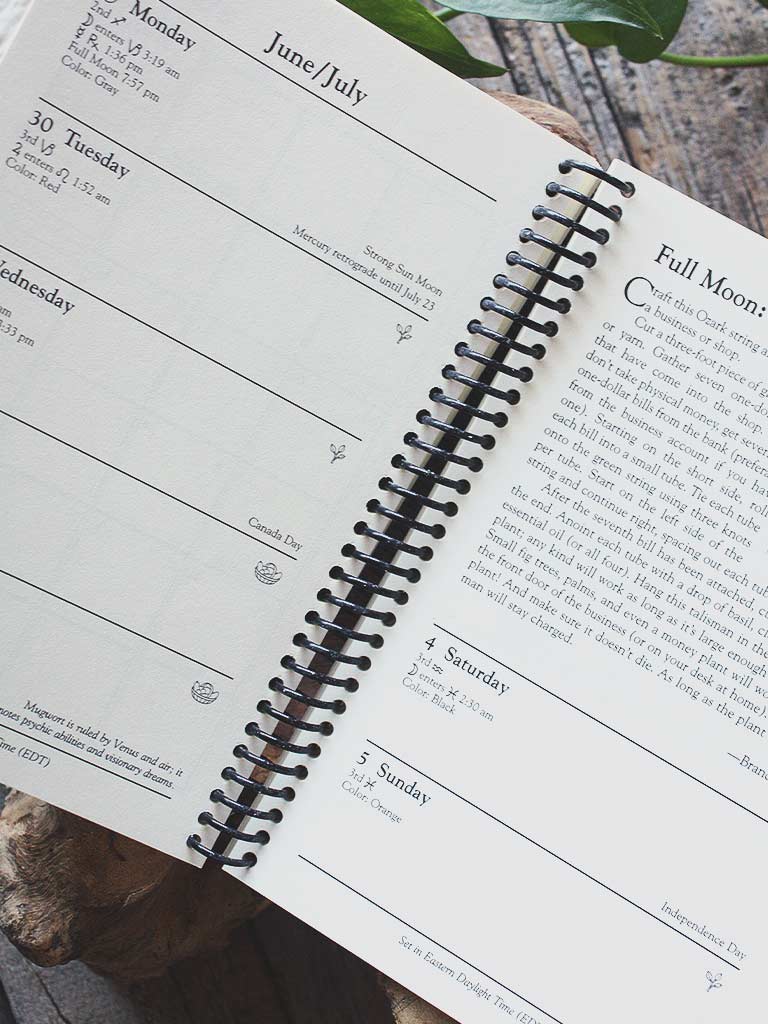 June/July
Monday
2nd ♐
☽ enters ♑ 3:19 am
☿ ℞ 1:36 pm
Full Moon 7:57 pm
Color: Gray
Strong Sun Moon
Mercury retrograde until July 23
30 Tuesday
3rd ♑
♃ enters ♌ 1:52 am
Color: Red
Wednesday
am
3:33 pm
Canada Day
Mugwort is ruled by Venus and air; it
notes psychic abilities and visionary dreams.
Time (EDT)
Full Moon:
Craft this Ozark string
a business or shop.
Cut a three-foot piece of
or yarn. Gather seven
that have come into the shop.
don't take physical money, get
one-dollar bills from the bank
from the business account if you
one). Starting on the short side, roll
each bill into a small tube. Tie each tube
onto the green string using three knots
per tube. Start on the left side of the
string and continue right, spacing out each
the end. Anoint each tube with a drop of basil,
After the seventh bill has been attached,
essential oil (or all four). Hang this talisman in the
plant; any kind will work as long as it's large enough
Small fig trees, palms, and even a money plant will
the front door of the business (or on your desk at home).
plant! And make sure it doesn't die. As long as the plant
man will stay charged.
4 Saturday
3rd ♒
☽ enters ♓ 2:30 am
Color: Black
5 Sunday
3rd ♓
Color: Orange
Independence Day
Set in Eastern Daylight Time